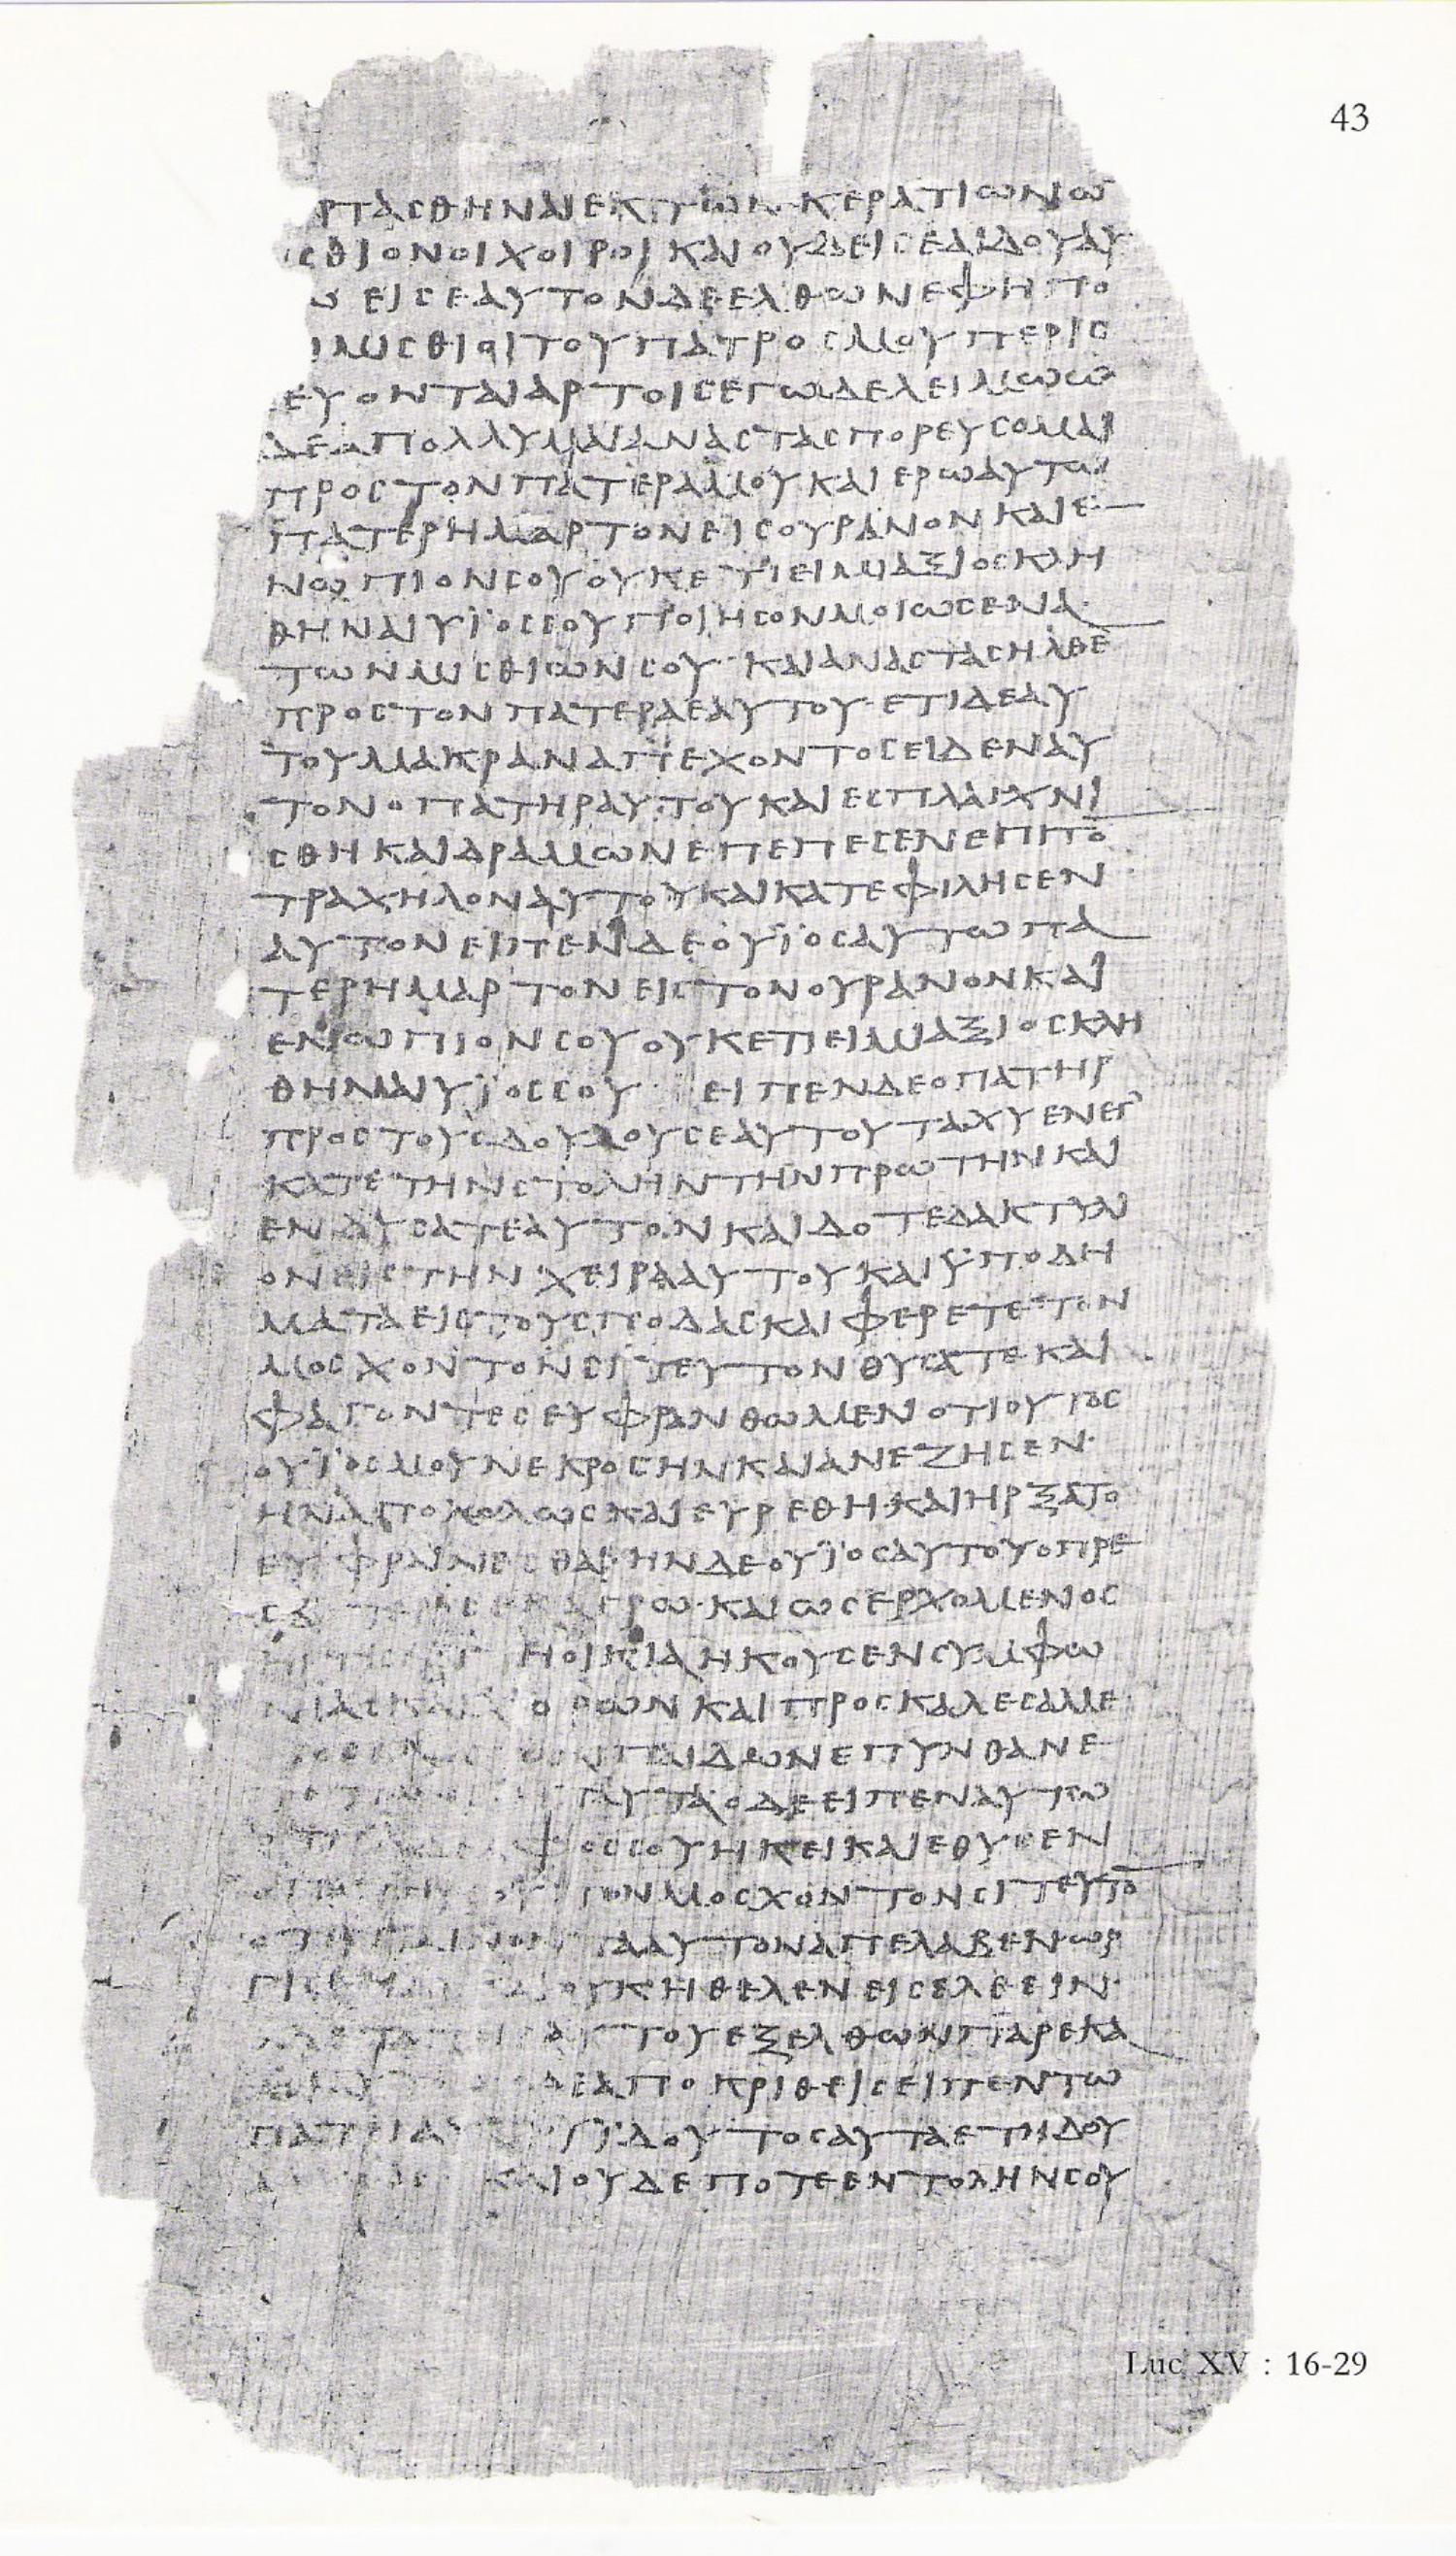 43
ΡΤΑСΘΗΝΑΙΕΚΤωΝΚΕΡΑΤΙωΝω̅
СΘΙΟΝΟΙΧΟΙΡΟΙΚΑΙΟΥΔΕΙСΕΔΙΔΟΥΑΥ
ω ΕΙСΕΑΥΤΟΝΔΕΕΛΘωΝΕΦΗΠΟ
ΙΜΙСΘΙΟΙΤΟΥΠΑΤΡΟСΜΟΥΠΕΡΙС
ΕΥΟΝΤΑΙΑΡΤΟΙСΕΓωΔΕΛΕΙΜωω
ΔΕΑΠΟΛΛΥΜΑΙΑΝΑСΤΑСΠΟΡΕΥСΟΜΑΙ
ΠΡΟСΤΟΝΠΑΤΕΡΑΜΟΥΚΑΙΕΡωΑΥΤω
ΠΑΤΕΡΗΜΑΡΤΟΝΕΙСΟΥΡΑΝΟΝΚΑΙΕ
ΝωΠΙΟΝСΟΥΟΥΚΕΤΙΕΙΜΙΑΞΙΟСΚΛΗ
ΘΗΝΑΙΥΪΟССΟΥΠΟΙΗСΟΝΜΟΙωСΕΝΑ
ΤωΝΜΙСΘΙωΝСΟΥ·ΚΑΙΑΝΑСΤΑСΗΛΘΕ
ΠΡΟСΤΟΝΠΑΤΕΡΑΕΑΥΤΟΥ·ΕΤΙΔΕΑΥ
ΤΟΥΜΑΚΡΑΝΑΠΕΧΟΝΤΟСΕΙΔΕΝΑΥ
ΤΟΝΟΠΑΤΗΡΑΥΤΟΥΚΑΙΕСΠΛΑΓΧΝΙ
СΘΗΚΑΙΔΡΑΜωΝΕΠΕΠΕСΕΝΕΠΙΤΟ̅
ΤΡΑΧΗΛΟΝΑΥΤΟΥΚΑΙΚΑΤΕΦΙΛΗСΕΝ
ΑΥΤΟΝΕΙΠΕΝΔΕΟΥΪΟСΑΥΤωΠΑ
ΤΕΡΗΜΑΡΤΟΝΕΙСΤΟΝΟΥΡΑΝΟΝΚΑΙ
ΕΝωΠΙΟΝСΟΥΟΥΚΕΤΙΕΙΜΙΑΞΙΟСΚΛΗ
ΘΗΝΑΙΥΪΟССΟΥ· ΕΙΠΕΝΔΕΟΠΑΤΗΡ
ΠΡΟСΤΟΥСΔΟΥΛΟΥСΕΑΥΤΟΥΤΑΧΥΕΝΕΓ
ΚΑΤΕΤΗΝСΤΟΛΗΝΤΗΝΠΡωΤΗΝΚΑΙ
ΕΝΔΥСΑΤΕΑΥΤΟΝΚΑΙΔΟΤΕΔΑΚΤΥΛΙ
ΟΝΕΙСΤΗΝΧΕΙΡΑΑΥΤΟΥΚΑΙΥΠΟΔΗ
ΜΑΤΑΕΙСΤΟΥСΠΟΔΑСΚΑΙΦΕΡΕΤΕΤΟΝ
ΜΟСΧΟΝΤΟΝСΙΤΕΥΤΟΝΘΥСΑΤΕΚΑΙ
ΦΑΓΟΝΤΕСΕΥΦΡΑΝΘωΜΕΝΟΤΙΟΥΤΟС
ΟΥΪΟСΜΟΥΝΕΚΡΟСΗΝΚΑΙΑΝΕΖΗСΕΝ·
ΗΝΑΠΟΛωΛωСΚΑΙΕΥΡΕΘΗ·ΚΑΙΗΡΞΑΤΟ
ΕΥΦΡΑΙΝΕСΘΑΙΗΝΔΕΟΥΪΟСΑΥΤΟΥΟΠΡΕ
СΒ ΤΕΡΟСΕΝΑΓΡω·ΚΑΙωСΕΡΧΟΜΕΝΟС
ΗΟΙΚΙΑΗΚΟΥСΕΝСΥΜΦω
ΝΙΑСΚΑΙ Ο ΡωΝΚΑΙΠΡΟСΚΑΛΕСΑΜΕ
ΠΑΙΔωΝΕΠΥΝΘΑΝΕ
ΤΑΥΤΑΟΔΕΕΙΠΕΝΑΥΤω
Φ ΟССΟΥΗΚΕΙΚΑΙΕΘΥСΕΝ
ΤΟΝΜΟСΧΟΝΤΟΝСΙΤΕΥΤΟ̅
ΤΑΑΥΤΟΝΑΠΕΛΑΒΕΝωΡ
ΓΙСΘΗ ΟΥΚΗΘΕΛΕΝΕΙСΕΛΘΕΙΝ·
ΑΥΤΟΥΕΞΕΛΘωΝΠΑΡΕΚΑ
ΔΕΑΠΟΚΡΙΘΕΙСΕΙΠΕΝΤω
ΠΑΤΡΙΑ ΪΔΟΥΤΟСΑΥΤΑΕΤΗΔΟΥ
ΚΑΙΟΥΔΕΠΟΤΕΕΝΤΟΛΗΝСΟΥ
Luc XV : 16-29